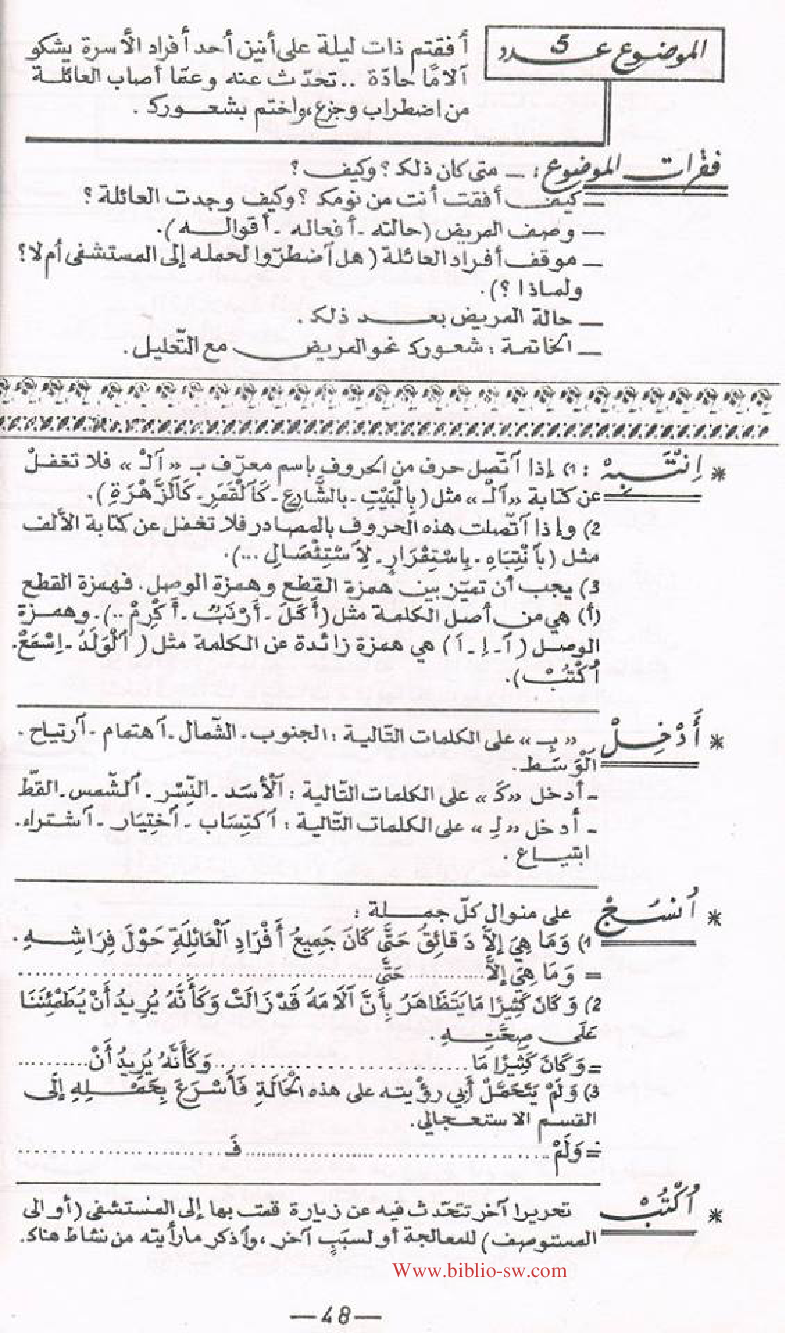 الموضوع عدد 5
أفقتم ذات ليلة على أنين أحد أفراد الأسرة يشكو
آلامًا حادّة .. تحدّث عنه وعمّا أصاب العائلة
من اضطراب وجزع، واختم بشعورك .
فقرات الموضوع : ـ متى كان ذلك ؟ وكيف ؟
ـ كيف أفقت أنت من نومك ؟ وكيف وجدت العائلة ؟
ـ وصف المريض (حالته ـ أفعاله ـ أقواله ).
ـ موقف أفراد العائلة ( هل ٱضطرّوا لحمله إلى المستشفى أم لا؟
ولماذا ؟).
ـ حالة المريض بعد ذلك .
ـ الخاتمة : شعورك نحو المريض مع التّعليل .
* اِنْتَبِهْ : 1) إذا ٱتّصل حرف من الحروف بإسم معرّف بـ « ٱلـ » فلا تغفلْ
عن كتابة «ٱلـ» مثل ( بِالْبَيْتِ ـ بالشَّارِعِ ـ كَٱلْقَمَرِ ـ كَٱلزَّهْرَةِ ).
2) وإذا ٱتّصلت هذه الحروف بالمصادر فلا تغفل عن كتابة الألف
مثل ( بٱنْتِبَاهٍ ـ بِاسْتِمْرَارٍ ـ لاِسْتِئْصَالِ ...).
3) يجب أن تميّز بين همزة القطع وهمزة الوصل . فهمزة القطع
(أ) هي من أصل الكلمة مثل ( أَكَلَ ـ أَرْنَبٌ ـ أَكْرِمْ ..) . وهمزة
الوصل ( ٱ ـ اِ ـ ٱ ) هي همزة زائدة عن الكلمة مثل ( ٱلْوَلَدُ ـ اِسْمَعْ ـ
ٱكْتُبْ ).
* أَدْخِلْ ـ « بِـ » على الكلمات التّالية : الجنوب ـ الشّمال ـ ٱهتمام ـ ٱرتياح ـ
ٱلْوَسَط .
ـ أدخل «كَـ» على الكلمات التّالية : ٱلْأسد ـ النّسْر ـ ٱلشّمس ـ القطّ
ـ أدخل «لِـ» على الكلمات التّالية : ٱكتِسَاب ـ ٱختِيَار ـ ٱشتراء .
ابتياع .
* ٱنسَجْ على منوال كلّ جملة :
1) وَمَا هِيَ إِلاَّ دَقائِقُ حَتَّى كَانَ جَمِيعُ أَفْرَادِ ٱلْعَائِلَةِ حَوْلَ فِرَاشِهِ .
= وَمَا هِيَ إلاَّ .......... حَتَّى ..............................
2) وَكَانَ كَثِيرًا مَا يَتَظَاهَرُ بِأَنَّ آلاَمَهُ قَدْ زَالَتْ وَكَأَنَّهُ يُرِيدُ أَنْ يُطَمْئِنَنَا
عَلَى صِحَّتِهِ .
= وَكَانَ كَثِيرًا مَا .............................. وَكَأَنَّهُ يُرِيدُ أَنْ ..........
3) وَلَمْ يَتَحَمَّلْ أَبِي رؤيته على هذه الْحَالَةِ فَأَسْرَعَ بِحَمْلِهِ إلَى
القسم الاستعجالي .
= وَلَمْ ........................................ فَـ ..............................
* ٱكْتُبْ تحريرا آخر تتحّدث فيه عن زيارة قمت بها إلى المستشفى ( أو إلى
المستوصف ) للمعالجة أو لسبَبٍ آخر ، وٱذكر ما رأيته من نشاط هناك .
Www.biblio-sw.com
—48—